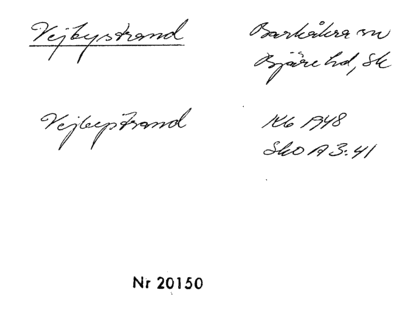 Vejbystrand
Barkåkra sn
Bjäre hd, Sk
Vejbystrand
Kb 1948
SkO A 3:41
Nr 20150